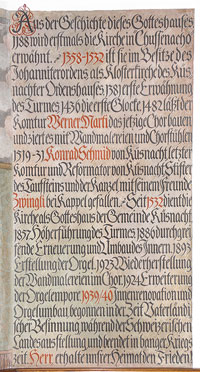 Aus der Geschichte dieses Gotteshauses
1188 wird erstmals die Kirche in Chussenacho
erwähnt. – 1358-1532 ist sie im Besitze des
Johanniterordens als Klosterkirche des Küs-
nachter Ordenshauses 1381 erste Erwähnung
des Turmes 1436 die erste Glocke 1482 läßt der
Komtur Werner Marti das jetzige Chor bauen
und ziert es mit Wandmalereien und Chorstühlen
1519-31 Konrad Schmid von Küsnacht letzter
Komtur und Reformator von Küsnacht Stifter
des Taufsteins und der Kanzel mit seinem Freunde
Zwingli bei Kappel gefallen. – Seit 1532 dient die
Kirche als Gotteshaus der Gemeinde Küsnacht.
1857 Höherführung des Turmes. 1886 durchgrei-
fende Erneuerung und Umbau des Innern. 1893
Erstellung der Orgel. 1923 Wiederherstellung
der Wandmalereien im Chor. 1924 Erweiterung
der Orgelempore. 1939/40 Innenrenovation und
Orgelumbau begonnen in der Zeit Vaterländi-
scher Besinnung während der Schweizerischen
Landesausstellung und beendet in banger Kriegs-
zeit Herr erhalte unsrer Heimat den Frieden!